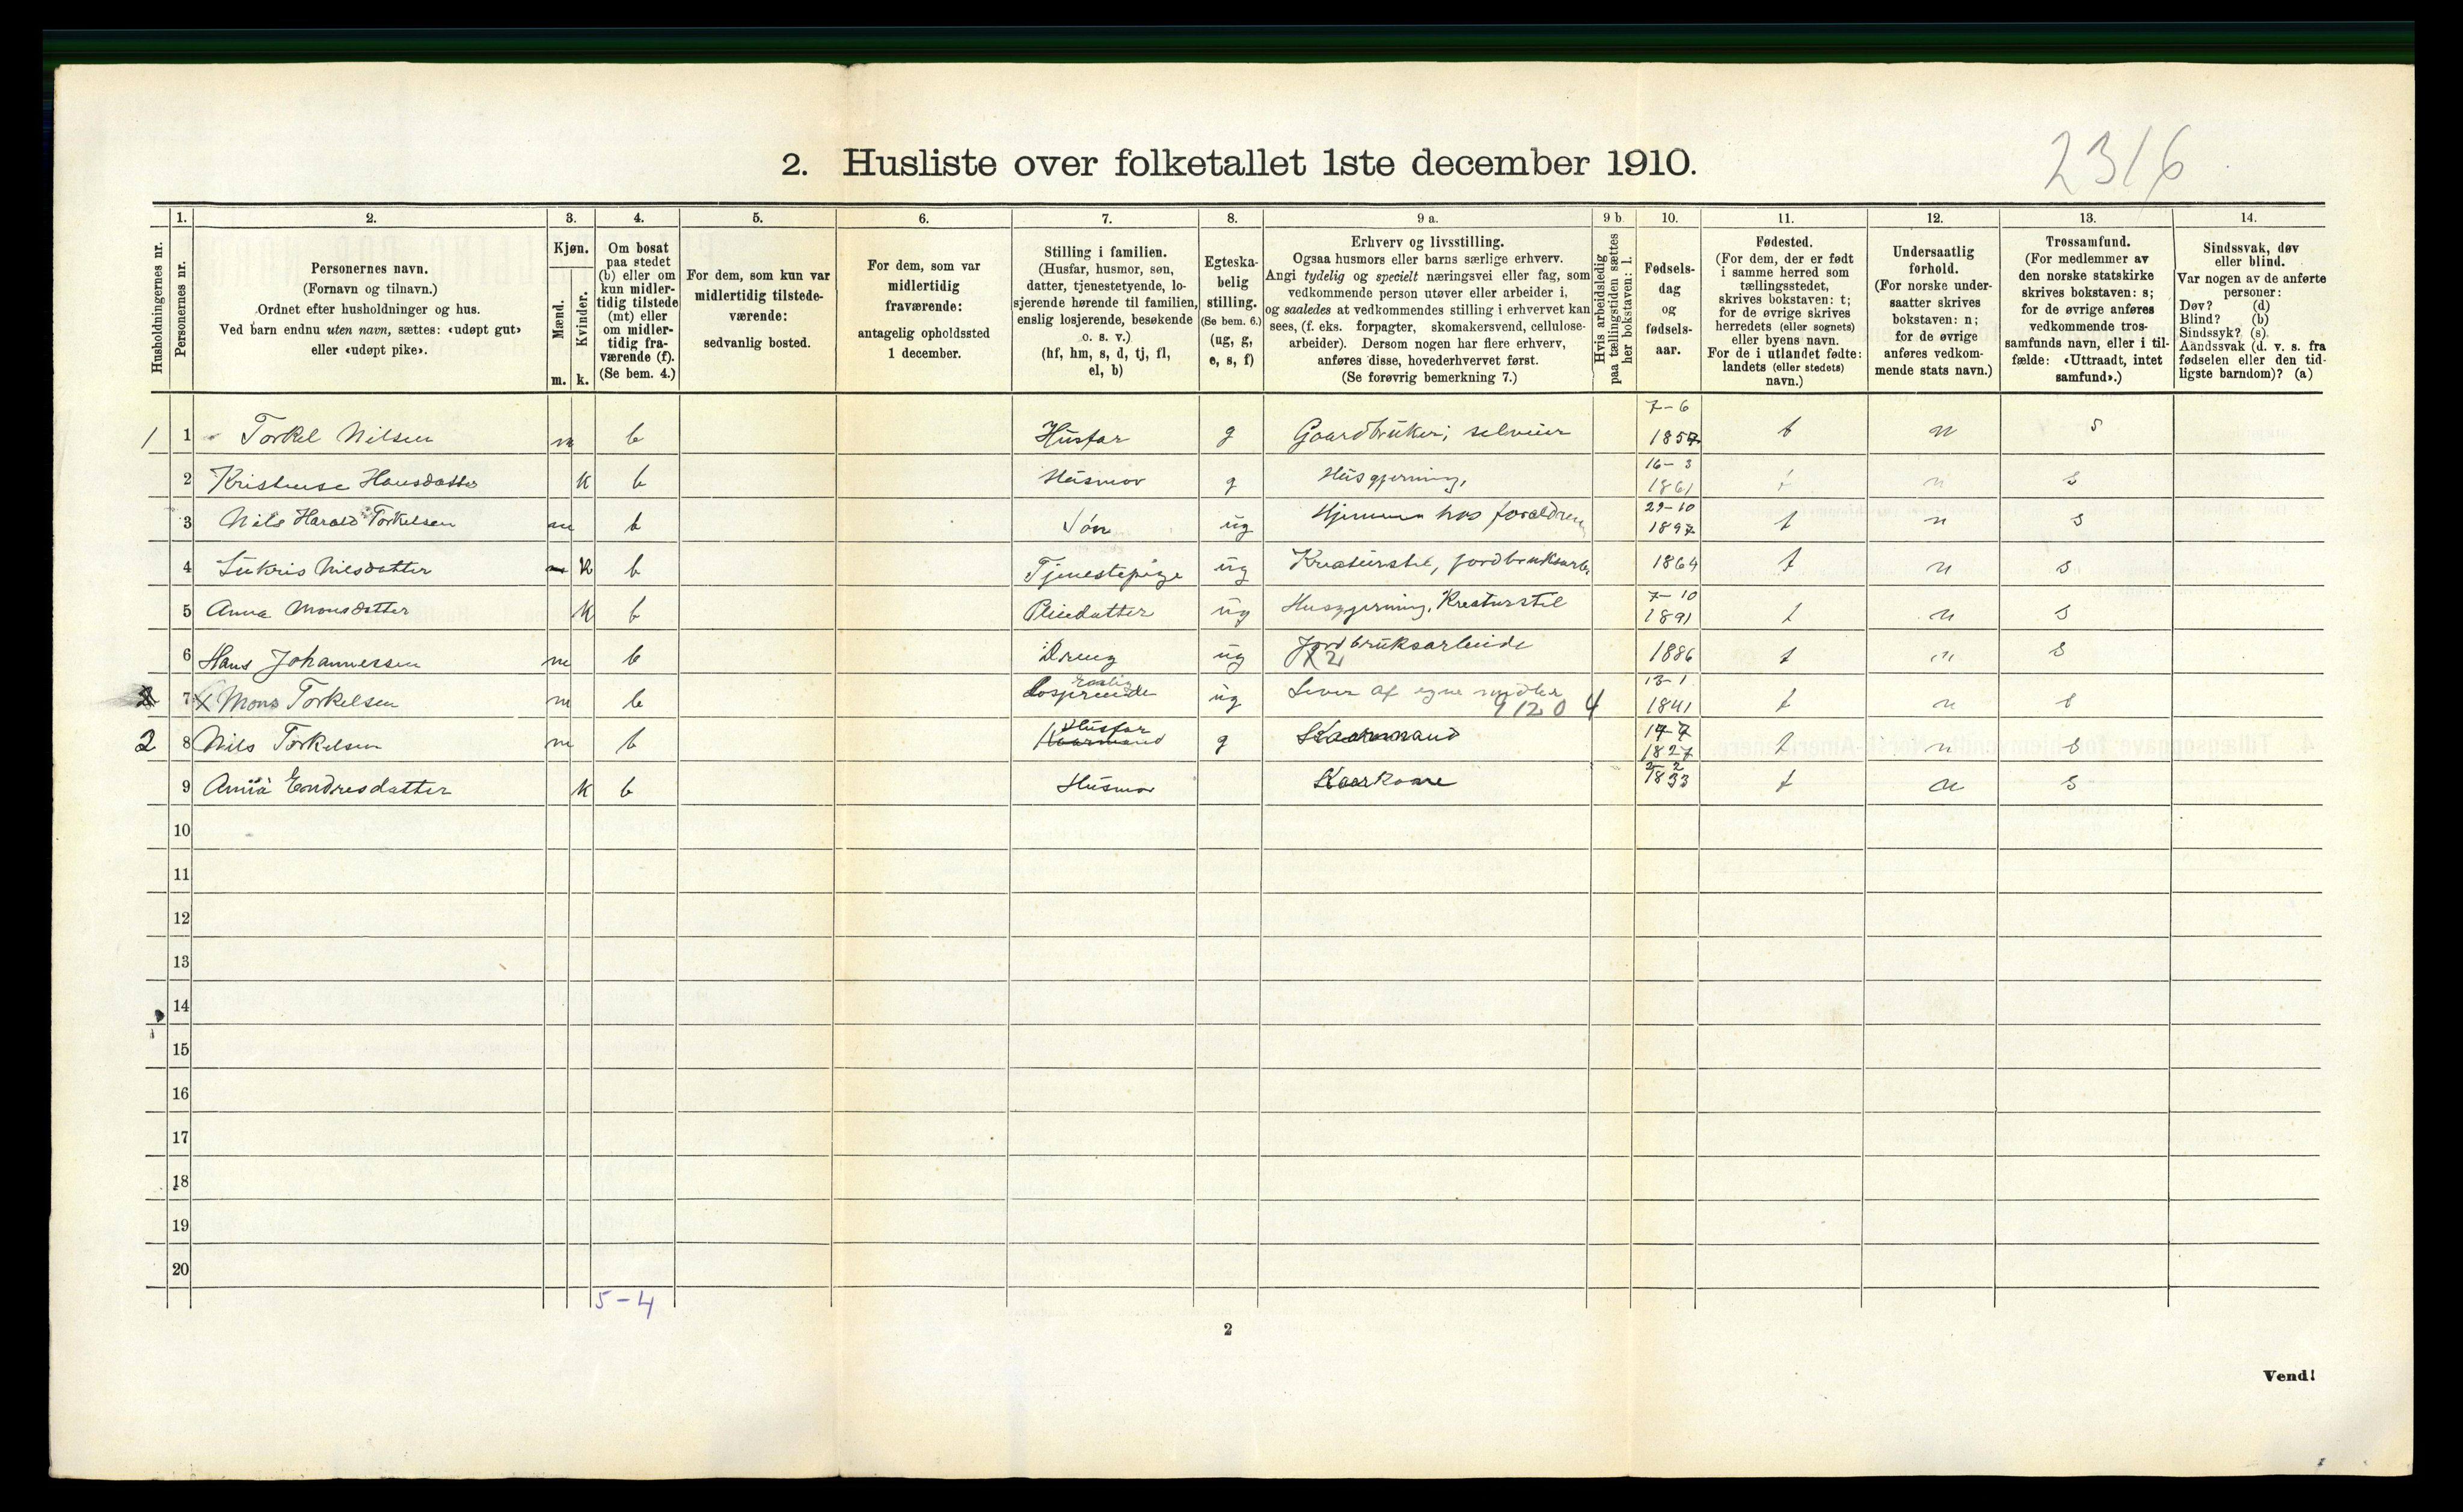 2. Husliste over folketallet 1ste december 1910.
2316
Husholdningernes nr.
1.
Personernes nr.
2.
Personernes navn.
(Fornavn og tilnavn.)
Ordnet efter husholdninger og hus.
Ved barn endnu uten navn, sættes: «udøpt gut»
eller «udøpt pike».
3.
Kjøn.
Mænd.
Kvinder.
m. k.
4.
Om bosat
paa stedet
(b) eller om
kun midler-
tidig tilstede
(mt) eller
om midler-
tidig fra-
værende (f).
(Se bem. 4.)
5.
For dem, som kun var
midlertidig tilstede-
værende:
sedvanlig bosted.
6.
For dem, som var
midlertidig
fraværende:
antagelig opholdssted
1 december.
7.
Stilling i familien.
(Husfar, husmor, søn,
datter, tjenestetyende, lo-
sjerende hørende til familien,
enslig losjerende, besøkende
o. s. v.)
(hf, hm, s, d, tj, fl,
el, b)
8.
Egteska-
belig
stilling.
(Se bem. 6.)
(ug, g,
e, s, f)
9 a.
Erhverv og livsstilling.
Ogsaa husmors eller barns særlige erhverv.
Angi tydelig og specielt næringsvei eller fag, som
vedkommende person utøver eller arbeider i,
og saaledes at vedkommendes stilling i erhvervet kan
sees, (f. eks. forpagter, skomakersvend, cellulose-
arbeider). Dersom nogen har flere erhverv,
anføres disse, hovederhvervet først.
(Se forøvrig bemerkning 7.)
9 b.
Hvis arbeidsledig
paa tællingstiden sættes
her bokstaven: l.
10.
Fødsels-
dag
og
fødsels-
aar.
11.
Fødested.
(For dem, der er født
i samme herred som
tællingsstedet,
skrives bokstaven: t;
for de øvrige skrives
herredets (eller sognets)
eller byens navn.
For de i utlandet fødte:
landets (eller stedets)
navn.)
12.
Undersaatlig
forhold.
(For norske under-
saatter skrives
bokstaven: n;
for de øvrige
anføres vedkom-
mende stats navn.)
13.
Trossamfund.
(For medlemmer av
den norske statskirke
skrives bokstaven: s;
for de øvrige anføres
vedkommende tros-
samfunds navn, eller i til-
fælde: «Uttraadt, intet
samfund».)
14.
Sindssvak, døv
eller blind.
Var nogen av de anførte
personer:
Døv? (d)
Blind? (b)
Sindssyk? (s)
Aandssvak (d. v. s. fra
fødselen eller den tid-
ligste barndom)? (a)
1 1 Torkel Nilsen m b Husfar g Gaardbruker, selveier 7-6 1857 t n s
2 Kristense Hansdatter k b Husmor g Husgjerning, 16-3 1861 t n s
3 Nils Harald Torkelsen m b Søn ug Hjemme hos foraldren 29-10 1897 t n s
4 Nilsdatter k b Tjenestepige ug Kreaturstel, jordbruksarb. 1864 t n s
5 Anna Monsdatter k b Pleiedatter ug Husgjerning, Kreaturstel 7-10 1891 t n s
6 Hans Johannessen m b Dreng ug Jordbruksarbeide 1886 t n s
X 2
7 X Mons Torkelsen m b Enslig Losjerende ug Lever af egne midler 13-1 1841 t n s
9120 4
2 8 Nils Torkelsen m b Husfar Kaarmand g Kaarmand 1827 t n s
9 Anna Endresdatter k b Husmor Kaarkone 2-2 1833 t n s
10
11
12
13
14
15
16
17
18
19
20
5-4
2
Vend!